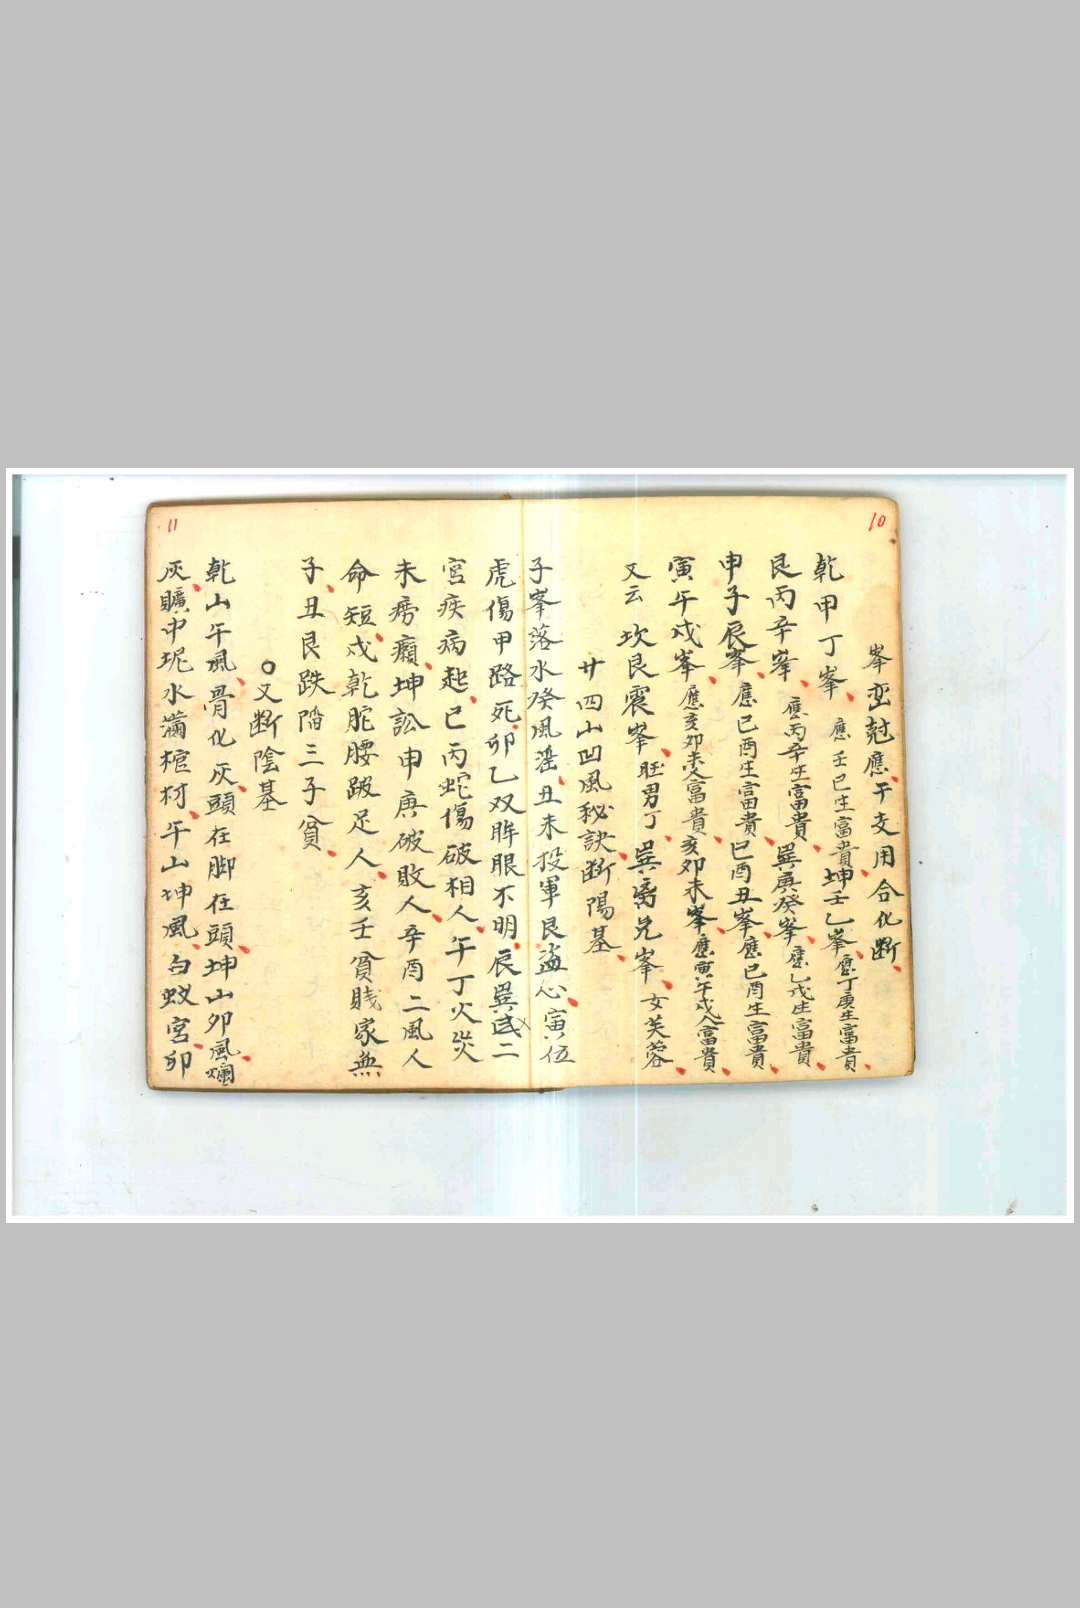 10
峯巒尅應干支用合化断
乾甲丁峯應壬巳生富貴坤壬乙峯應丁庚生富貴
艮丙辛峯應丙辛生富貴巽庚癸峯應乙戌生富貴
申子辰峯應巳酉生富貴巳酉丑峯應巳酉生富貴
寅午戌峯應亥卯未人富貴亥卯未峯應寅午戌人富貴
又云坎艮震峯旺男丁巽离兑峯女芙蓉
廿四山凹風秘訣断陽基
子峯落水癸風滛丑未投軍艮盗心寅伍
虎傷甲路死卯乙双眸眼不明辰巽二
宮疾病起巳丙蛇傷破相人午丁火災
未癆癩坤訟申庚破敗人辛酉二風人
命短戌乾駝腰跛足人亥壬貧賤家無
子丑艮跌陷三子貧
○又断陰基
乾山午風骨化灰頭在脚在頭坤山卯風爛
灰壙中坭水滿棺材午山坤風白蚊宮卯
11